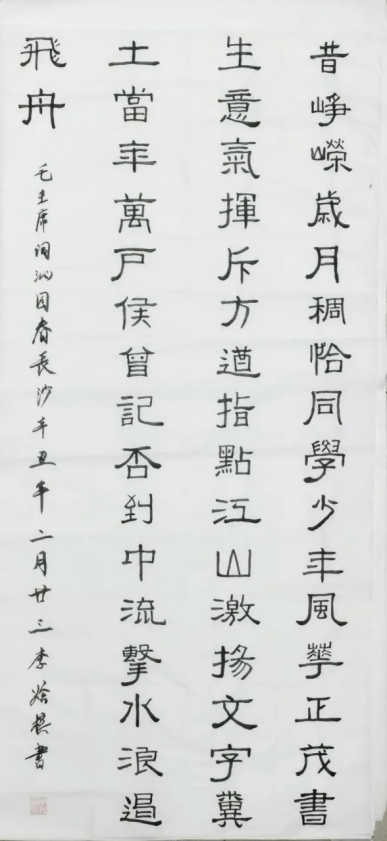 昔崢嶸歲月稠恰同學少年風華正茂書
生意氣揮斥方遒指點江山激揚文字糞
土當年萬戶侯曾記否到中流擊水浪遏
飛舟
毛主席词沁园春長沙辛丑年二月廿三李根書